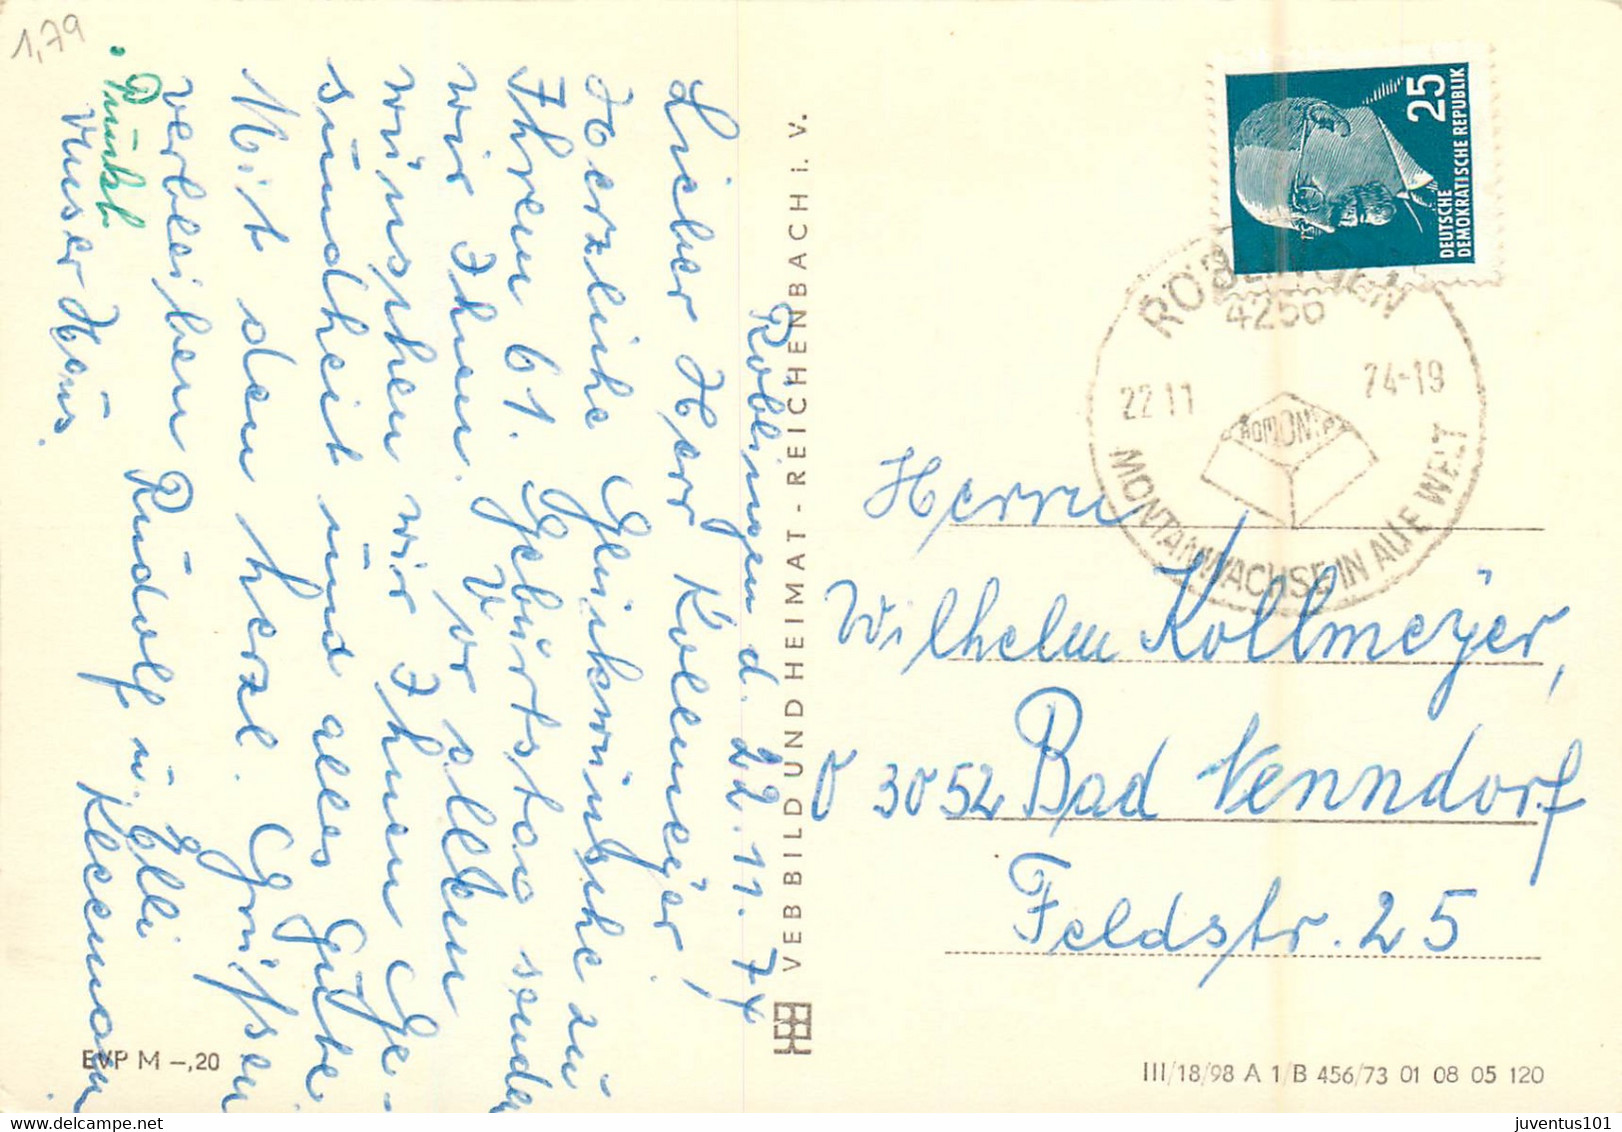 1,79
Röblingen d. 22.11.74
Lieber Herr Kollmeÿer!
Herzliche Glückwünsche zu
Ihrem 61. Geburtstag senden
wir Ihnen. Vor allem
wünschen wir Ihnen Ge-
sundheit und alles Gute.
Mit den herzl. Grüßen
verbleiben Rudolf u. Elli
unser Haus. Kleemann
VEB BILD UND HEIMAT - REICHENBACH i. V.
EVP M -,20
25
DEUTSCHE
DEMOKRATISCHE REPUBLIK
RÖBLINGEN
4256
22 11 74-19
ROMONTA
MONTANWACHSE IN ALLE WELT
Herrn
Wilhelm Kollmeÿer,
3052 Bad Nenndorf
Feldstr. 25
III/18/98 A 1/B 456/73 01 08 05 120
juventus101